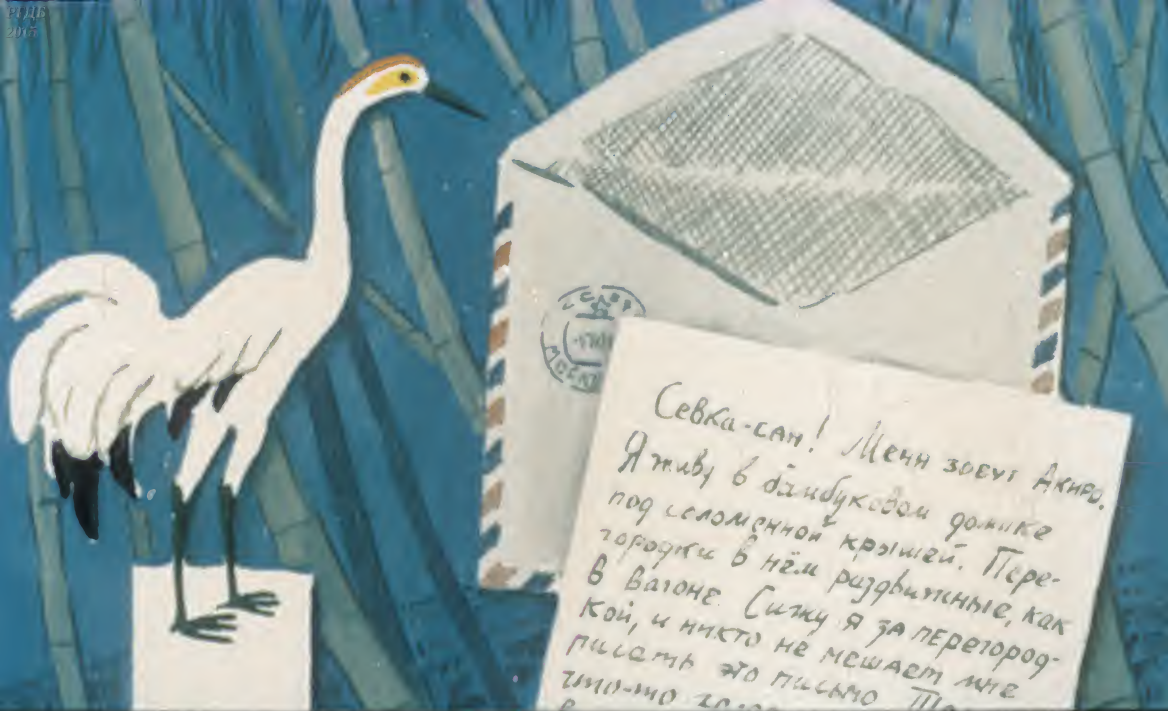 РГДБ
2015
СССР
МОСКВА
Севка-сан! Меня зовут Акиро.
Я живу в бамбуковом домике
под соломенной крышей. Пере-
городки в нём раздвижные, как
в вагоне. Сижу я за перегород-
кой, и никто не мешает мне
писать это письмо
что-то